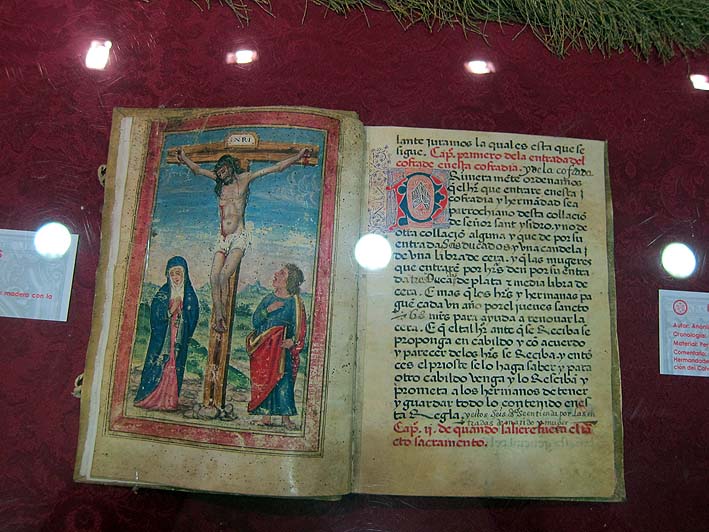 INRI
lante juramos la qual es esta que se
sigue.
Capº. primero dela entrada del
cofrade en esta cofradia. y de la cofada
Rimeramẽte ordenamos
q̃ el hº. que entrare en esta
cofradia y hermãdad sea
parrochiano desta collaciõ
de señor sant ysidro, y no de
otra collaciõ alguna y que de su
entrada ducados y vna candela
de vna libra de cera. y q̃ las mugeres
que entrarẽ por hrs. den por su entra
da ducados de plata y media libra de
cera. E mas q̃ los hrs. y hermanas pa
guẽ cada año por el jueves sancto
mrs. para ayuda a renouar la
cera. E q̃ el tal hr. ante q̃ se Reciba se
proponga en cabildo y cõ acuerdo
y parecer de los hrs. se Reciba y entõ
ces el prioste se lo haga saber y para
otro cabildo venga y lo Resciba y
prometa a los hermanos de tener
y guardar todo lo contenido en es
ta Regla.
tradas de marido y muger
Capº. ij. de quando saliere fuera el sã
cto sacramento.
S
madera con la
Autor: Anóni
Cronología:
Material: Per
Comentario:
Hermandad
ción del Cab